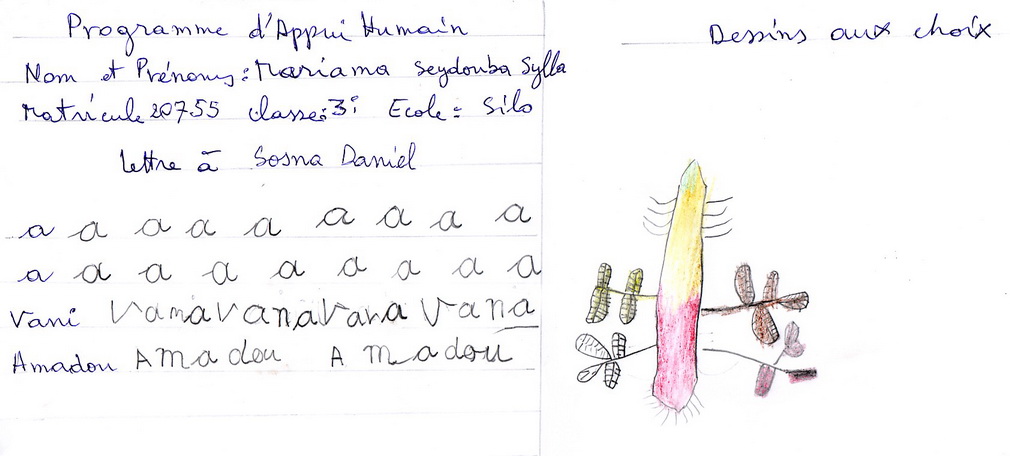 Programme d'Appui Humain
Nom et Prénoms: Mariama Seydouba Sylla
Matricule 20755 classe: 3i Ecole: Silo
lettre à Sosna Daniel
a a a a a a a a a
a a a a a a a a a
Vani Vana Vana Vana Vana
Amadou Amadou Amadou
Dessins aux choix